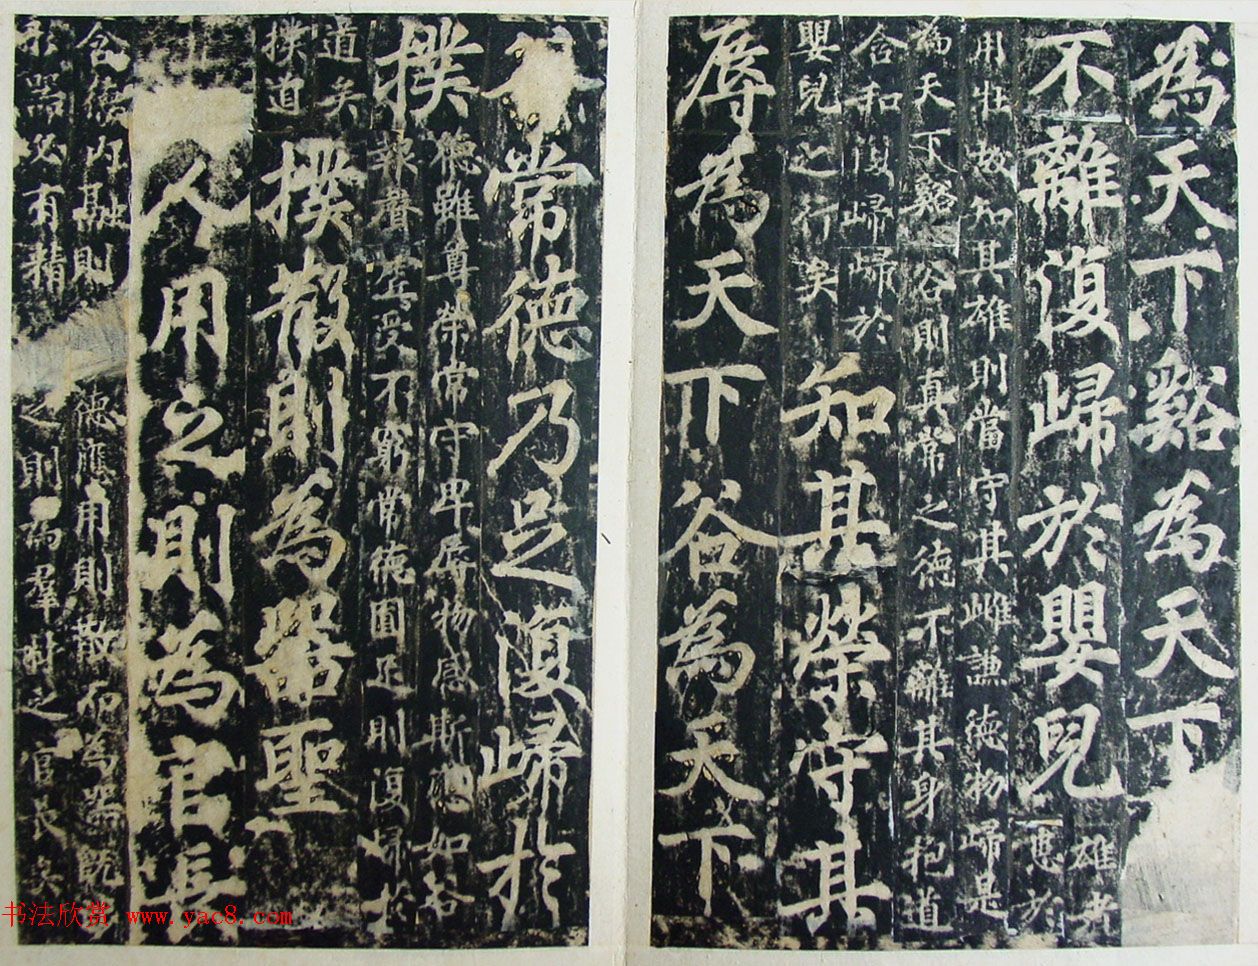 為天下谿為天下
不離復歸於嬰兒
雄者
於
用牡故知其雄則當守其雌謙德物歸是
為天下谿谷則真常之德不離其身抱道
含和復歸歸於
嬰兒之行矣
知其榮守其
辱為天下谷為天下
常德乃足復歸於
樸
德雖尊榮常守卑辱物感斯應如谷
報聲虛受不窮常德圓足則復歸於
道矣
樸道
樸散則為器聖
人用之則為官長
含德內融則
德應用則散而為器既
於器必有精
之則為羣材之官長矣
书法欣赏 www.yac8.com